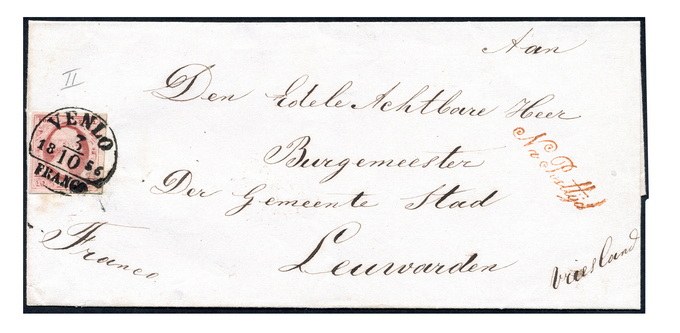 Aan
II
Den Edele Achtbare Heer
VENLO
3
18 10 56
FRANCO
Na Posttijd
Burgemeester
Der Gemeente Stad
Franco
Leuwarden
Vriesland